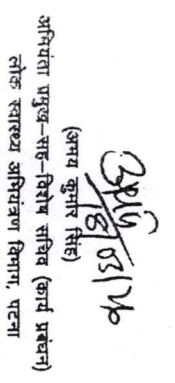 (अभय कुमार सिंह)
अभियंता प्रमुख-सह-विशेष सचिव (कार्य प्रबंधन)
लोक स्वास्थ्य अभियंत्रण विभाग, पटना